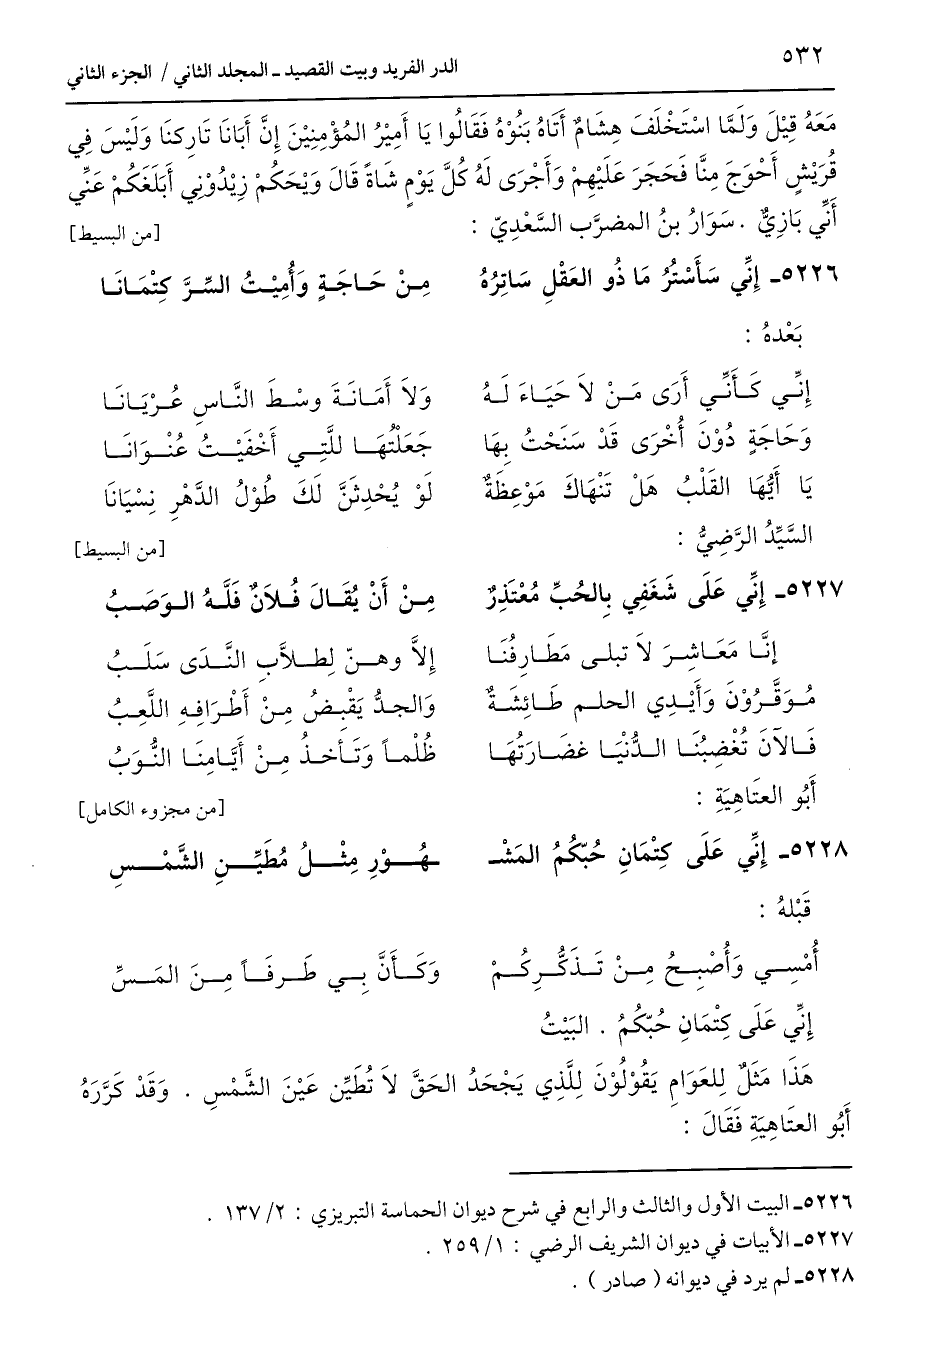 ٥٣٢
الدر الفريد وبيت القصيد ـ المجلد الثاني / الجزء الثاني
مَعَهُ قِيْلَ وَلَمَّا اسْتَخْلَفَ هِشَامٌ أَتَاهُ بَنُوْهُ فَقَالُوا يَا أَمِيْرُ المُؤْمِنِيْنَ إِنَّ أَبَانَا تَارِكنَا وَلَيْسَ فِي
قُرَيْشٍ أَحْوَجَ مِنَّا فَحَجَرَ عَلَيْهِمْ وَأَجْرَى لَهُ كُلَّ يَوْمٍ شَاةً قَالَ وَيْحَكُمْ زِيْدُوْنِي أَبلَغَكُمْ عَنِّي
أَنِّي بَازِيٌّ . سَوَارُ بنُ المضرَّب السَّعْدِيّ : [من البسيط]
٥٢٢٦ـ إِنِّي سَأَسْتُرُ مَا ذُو العَقْلِ سَاتِرُهُ مِنْ حَاجَةٍ وَأُمِيْتُ السِّرَّ كِتْمَانَا
بَعْدهُ :
إِنِّي كَأَنَّي أَرَى مَنْ لاَ حَيَاءَ لَهُ وَلاَ أَمَانَةَ وسْطَ النَّاسِ عُرْيَانَا
وَحَاجَةٍ دُوْنَ أُخْرَى قَدْ سَنَحْتُ بِهَا جَعَلْتُهَا للَّتِي أَخْفَيْتُ عُنْوَانَا
يَا أَيُّهَا القَلْبُ هَلْ تَنْهَاكَ مَوْعِظَةٌ لَوْ يُحْدِثَنَّ لَكَ طُوْلُ الدَّهْرِ نِسْيَانَا
السَّيِّدُ الرَّضِيُّ : [من البسيط]
٥٢٢٧ـ إِنِّي عَلَى شَغَفِي بِالحُبِّ مُعْتَذِرٌ مِنْ أَنْ يُقَالَ فُلاَنٌ فَلَّهُ الوَصَبُ
إِنَّا مَعَاشِرَ لاَ تبلى مَطَارِفُنَا إِلاَّ وهنّ لِطلاَّبِ النَّدَى سَلَبُ
مُوَقَّرُوْنَ وَأَيْدِي الحلم طَائِشَةٌ وَالجدُّ يَقْبِضُ مِنْ أَطْرَافِهِ اللَّعِبُ
فَالآنَ تُغْضِبُنَا الدُّنْيَا غضَارَتُهَا ظُلْماً وَتَأخذُ مِنْ أَيَّامِنَا النُّوَبُ
أَبُو العتَاهِيَةِ : [من مجزوء الكامل]
٥٢٢٨ـ إِنِّي عَلَى كِتْمَانِ حُبّكُمُ المَشْـ ـهُوْرِ مِثْلُ مُطَيِّنِ الشَّمْسِ
قَبْلهُ :
أُمْسِي وَأُصْبِحُ مِنْ تَذَكُّرِكُمْ وَكَأَنَّ بِي طَرفَاً مِنَ المَسِّ
إِنِّي عَلَى كِتْمَانِ حُبّكُمُ . البَيْتُ
هَذَا مَثَلٌ لِلعَوَامِ يَقُوْلُوْنَ لِلَّذِي يَجْحَدُ الحَقَّ لاَ تُطَيِّن عَيْنَ الشَّمْسِ . وَقَدْ كَرَّرَهُ
أَبُو العتَاهِيَةِ فَقَالَ :
٥٢٢٦ـ البيت الأول والثالث والرابع في شرح ديوان الحماسة التبريزي : ٢/ ١٣٧ .
٥٢٢٧ـ الأبيات في ديوان الشريف الرضي : ١/ ٢٥٩ .
٥٢٢٨ـ لم يرد في ديوانه ( صادر ) .